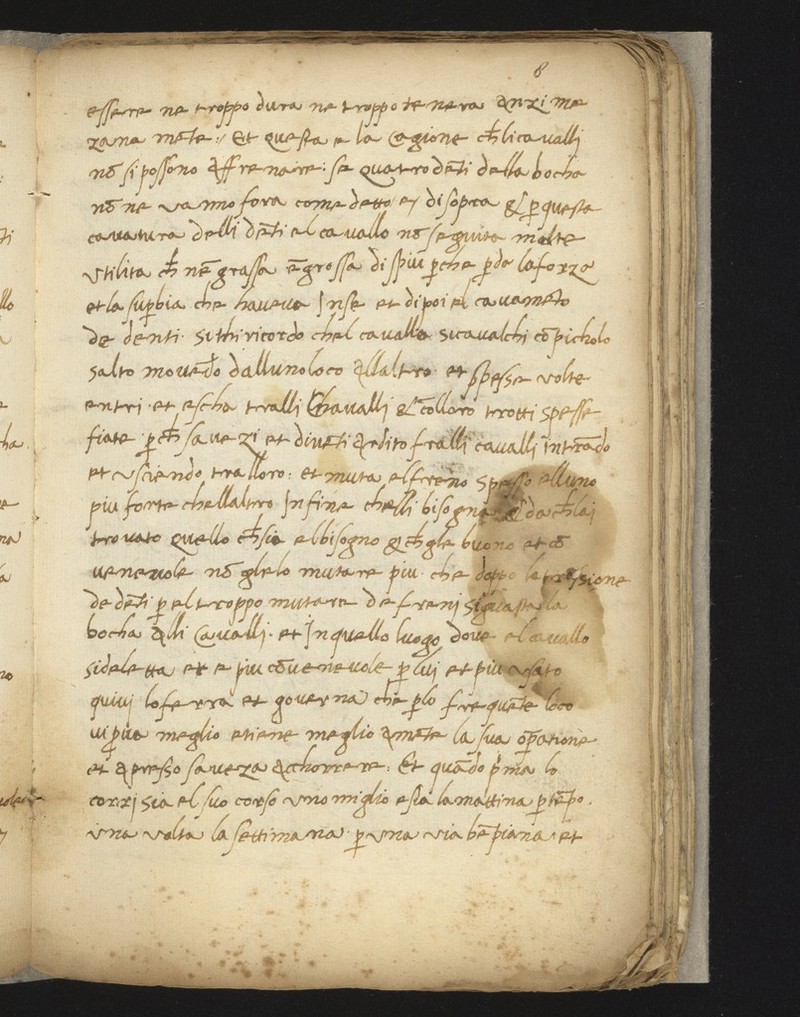 8
essere ne troppo dura ne troppo tenera anzi me
zana mēte :/ Et questa e la cagione ch̄ li cavalli
nō si possono affrenaire : se quatro dēti della bocha
nō ne vanno fora come detto e / disopra & ꝑ questa
cavatura delli dēti el cavallo nō seguita molte
utilita ch̄ nē grassa ēgrossa di piu ꝑche ꝑde la forza
et la suꝑbia che haveva Inse et dipoi el cavamēto
de denti · sithi ricordo chel cavallo si cavalchi cō picholo
salto movēdo dalluno loco allaltro · et spesse volte
entri · et escha tralli Chavalli & cō lloro trotti spesse
fiate · ꝑ ch̄ savezi et divēti ardito fralli cavalli intrādo
et usciendo tralloro : et muta el freno spesso elluno
piu forte chellaltro Infine chelli bisogna & da ch̄ lai
trovato quello ch̄ sia el bisogno & ch̄ gle buono et cō
venevole nō glelo mutare piu · che doppo la
de dēti ꝑ el troppo mutare de freni si guasta la
bocha alli Cavalli · et In quello luogo dove el cavallo
si deletta et e piu cōvenevole ꝑ lui et piu usato
quivi lo ferra et governa che ꝑlo frequēte loco
vi piua meglio etiene meglio amēte la sua oꝑatione
et apresso saveza acchorrere : Et quādo pima lo
corri sia el suo corso uno miglio e sia la mattina ꝑ tēpo ·
una volta la settimana · ꝑ una via bē piana · et